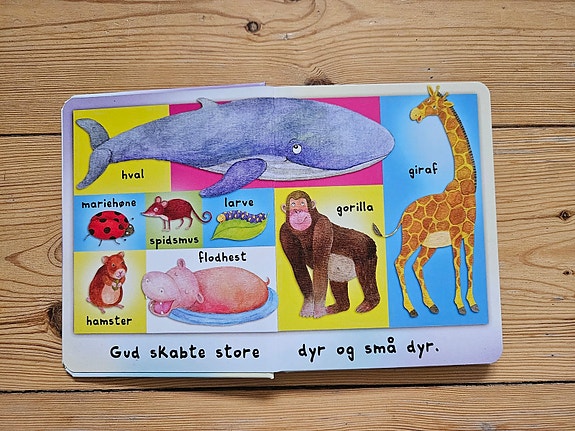 hval
giraf
mariehøne
larve
gorilla
spidsmus
flodhest
hamster
Gud skabte store dyr og små dyr.